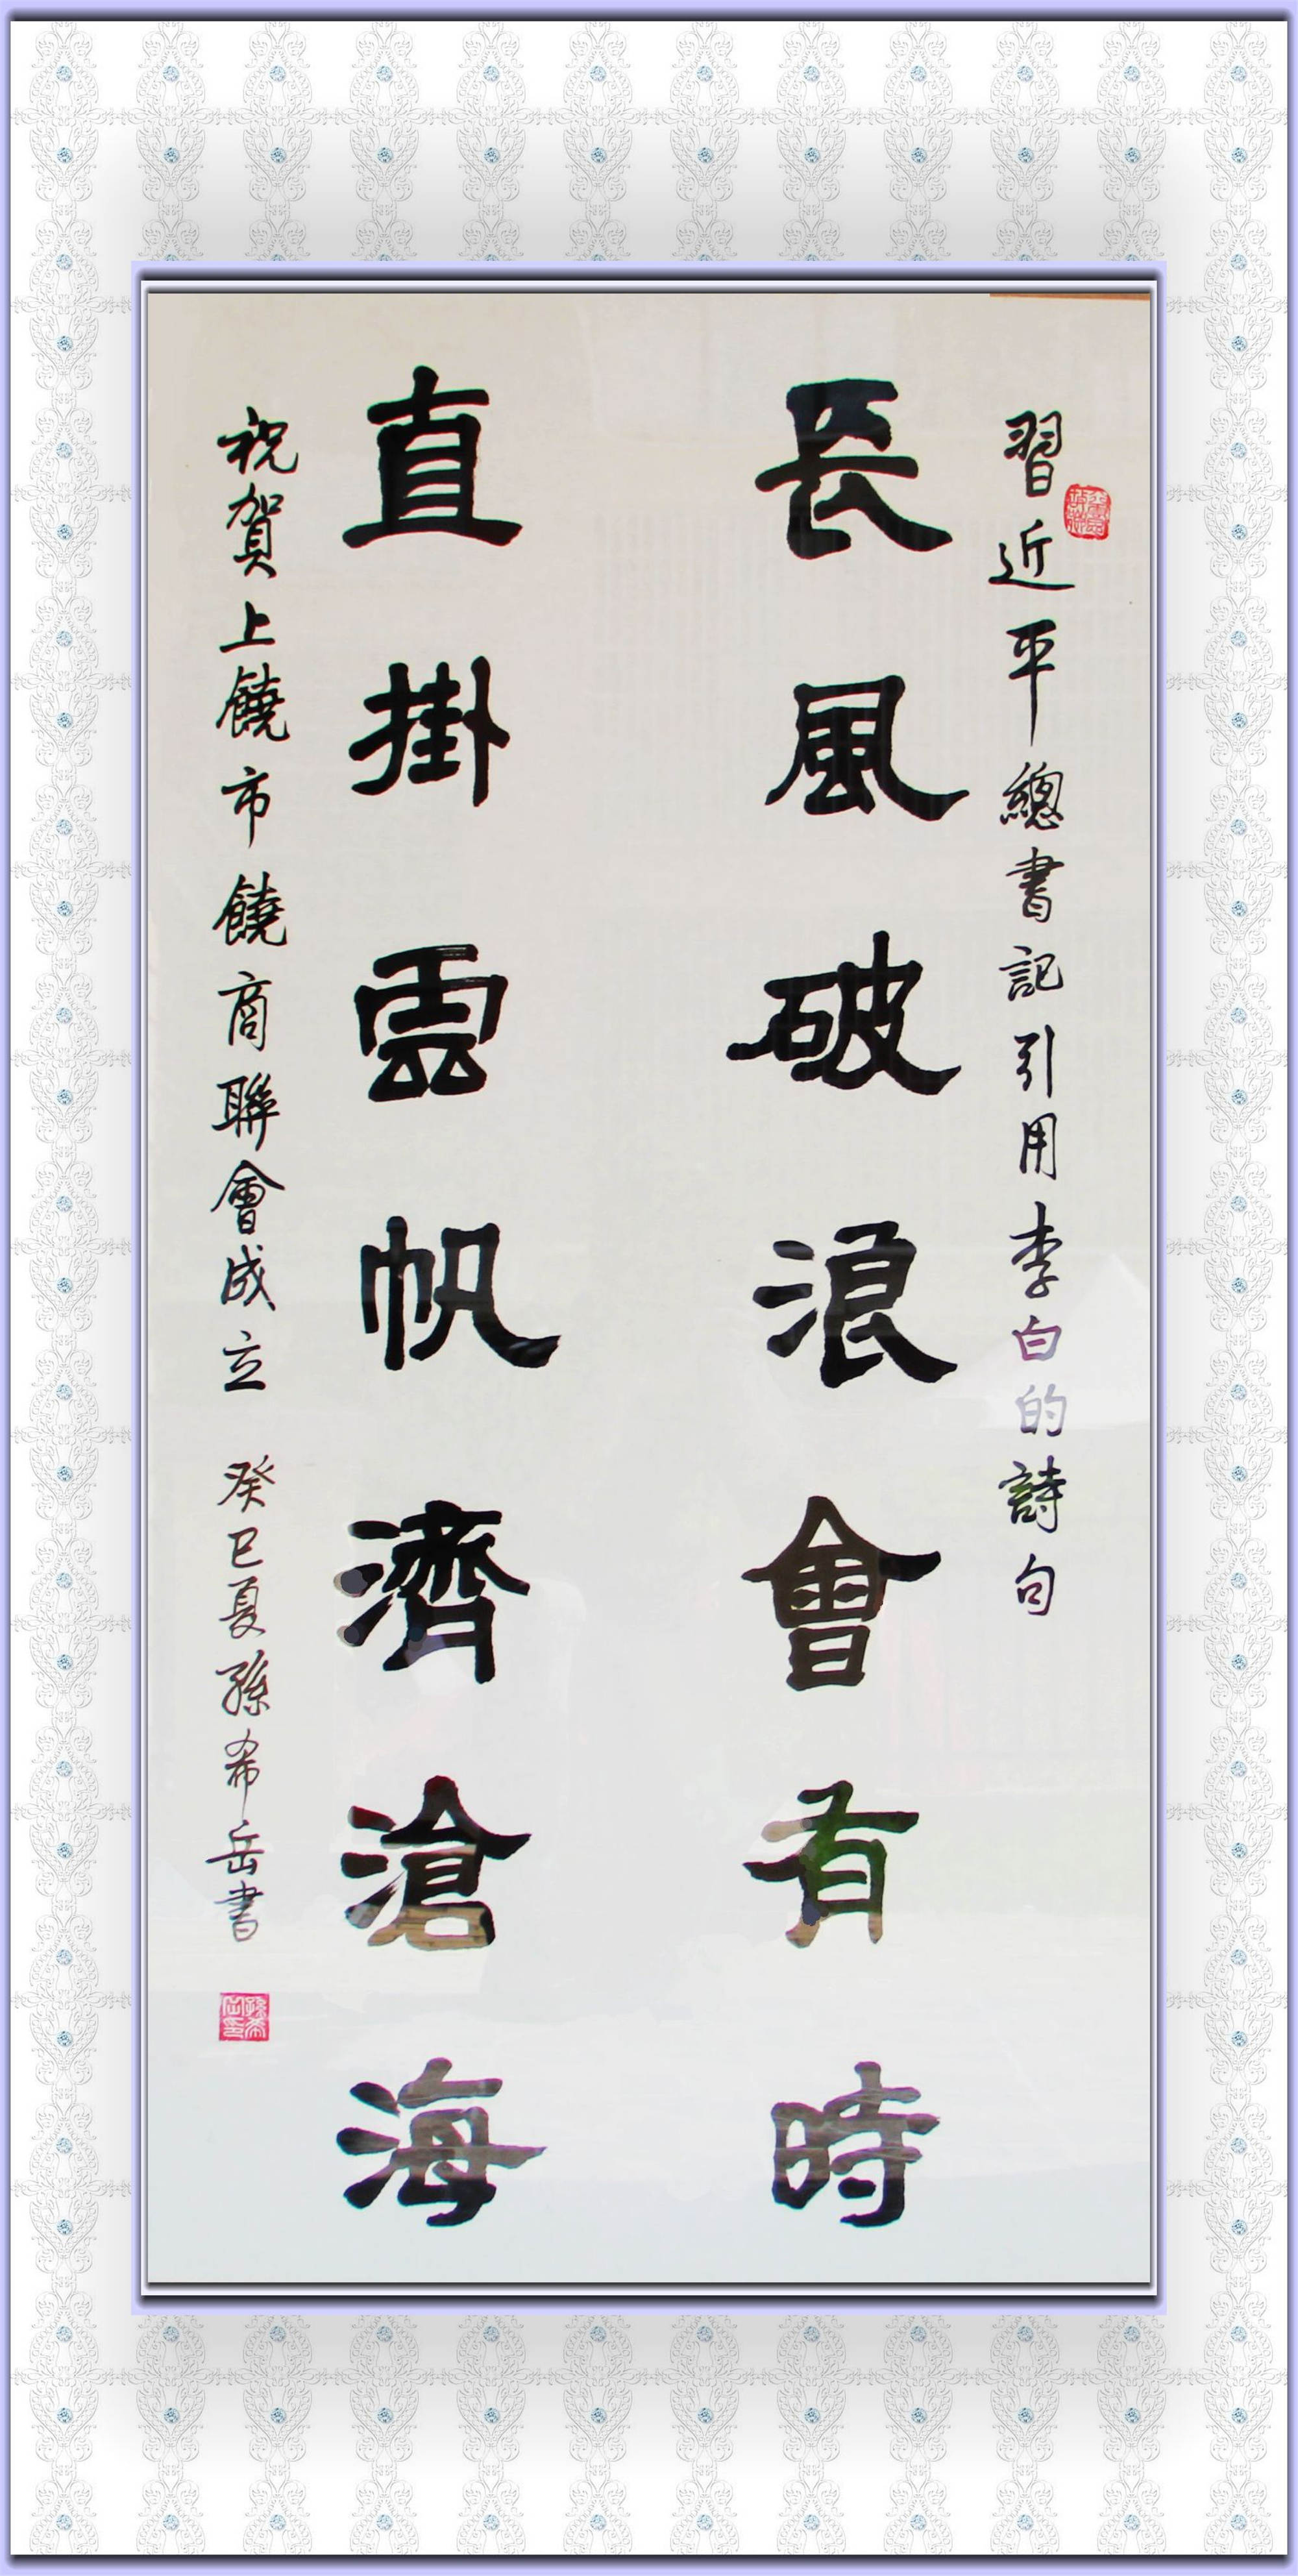 習近平總書記引用李白的詩句
長風破浪會有時
直掛雲帆濟滄海
祝賀上饒市饒商聯會成立 癸巳夏孫希岳書
孫希岳印